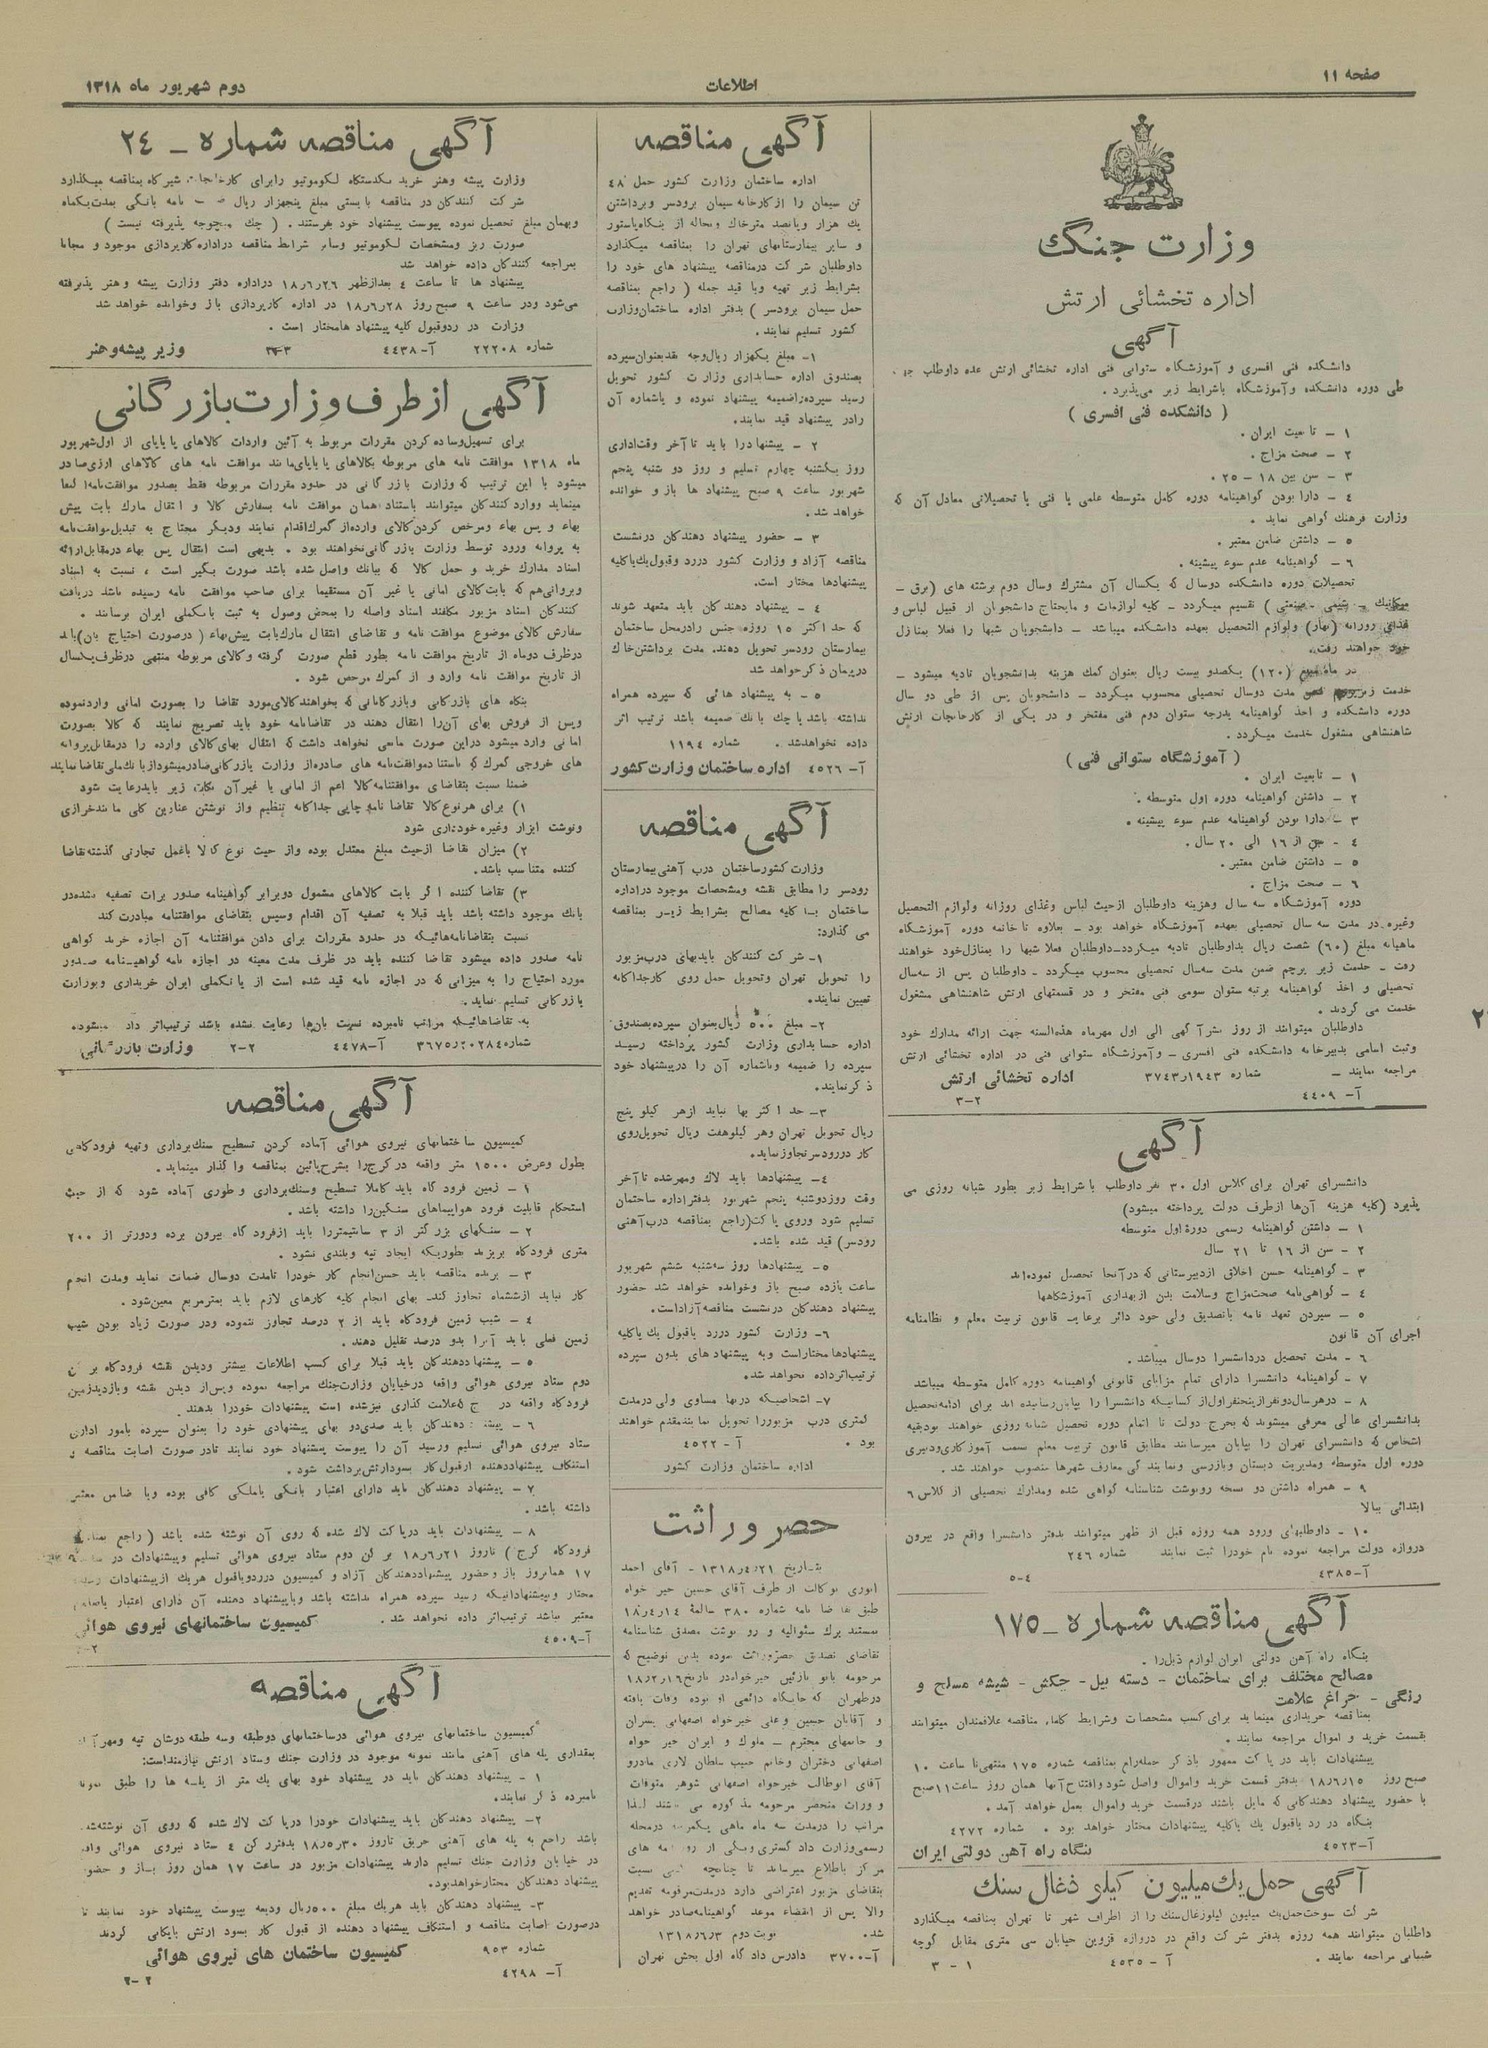 صفحه ۱۱
اطلاعات
دوم شهریور ماه ۱۳۱۸
وزارت جنگ
اداره تخشائی ارتش
آگهی
دانشکده فنی افسری و آموزشگاه ستوانی فنی اداره تخشائی ارتش عده داوطلب
طی دوره دانشکده وآموزشگاه باشرایط زیر می‌پذیرد .
( دانشکده فنی افسری )
۱ - تابعیت ایران .
۲ - صحت مزاج .
۳ - سن بین ۱۸ - ۲۵ .
٤ - دارا بودن گواهینامه دوره کامل متوسطه علمی یا فنی یا تحصیلاتی معادل آن که
وزارت فرهنگ گواهی نماید .
۵ - داشتن ضامن معتبر .
٦ - گواهینامه عدم سوء پیشینه .
تحصیلات دوره دانشکده دوسال که یکسال آن مشترك وسال دوم برشته های (برق -
مکانیك - شیمی - صنعتی) تقسیم میگردد - کلیه لوازمات و مایحتاج دانشجویان از قبیل لباس و
غذای روزانه (نهار) ولوازم التحصیل بعهده دانشکده میباشد - دانشجویان شبها را فعلا بمنازل
خود خواهند رفت.
در ماه مبلغ (۱۲۰) یکصدو بیست ریال بعنوان کمك هزینه بدانشجویان تادیه میشود -
خدمت زیر مدت دوسال تحصیلی محسوب میگردد - دانشجویان پس از طی دو سال
دوره دانشکده و اخذ گواهینامه بدرجه ستوان دوم فنی مفتخر و در یکی از کارخانجات ارتش
شاهنشاهی مشغول خدمت میگردد .
( آموزشگاه ستوانی فنی )
۱ - تابعیت ایران .
۲ - داشتن گواهینامه دوره اول متوسطه .
۳ - دارا بودن گواهینامه عدم سوء پیشینه .
٤ - از ۱٦ الی ۲۰ سال .
۵ - داشتن ضامن معتبر .
٦ - صحت مزاج .
دوره آموزشگاه سه سال وهزینه داوطلبان ازحیث لباس وغذای روزانه ولوازم التحصیل
وغیره در مدت سه سال تحصیلی بعهده آموزشگاه خواهد بود - بعلاوه تا خاتمه دوره آموزشگاه
ماهیانه مبلغ (٦۰) شصت ریال بداوطلبان تادیه میگردد-داوطلبان فعلا شبها را بمنازل خود خواهند
رفت - خدمت زیر پرچم ضمن مدت سه‌سال تحصیلی محسوب میگردد - داوطلبان پس از سه‌سال
تحصیلی و اخذ گواهینامه برتبه ستوان سومی فنی مفتخر و در قسمتهای ارتش شاهنشاهی مشغول
خدمت می گردند .
داوطلبان میتوانند از روز نشر آگهی الی اول مهرماه هذه‌السنه جهت ارائه مدارك خود
وثبت اسامی بدبیرخانه دانشکده فنی افسری - وآموزشگاه ستوانی فنی در اداره تخشائی ارتش
مراجعه نمایند - شماره ۳۷٤۳ر۱۹٤۳ اداره تخشائی ارتش
آ- ٤٤۰۹ ۳-۲
آگهی
دانشسرای تهران برای کلاس اول ۳۰ نفر داوطلب با شرایط زیر بطور شبانه روزی می
پذیرد (کلیه هزینه آن‌ها ازطرف دولت پرداخته میشود)
۱ - داشتن گواهینامه رسمی دورهٔ اول متوسطه
۲ - سن از ۱٦ تا ۲۱ سال
۳ - گواهینامه حسن اخلاق ازدبیرستانی که درآنجا تحصیل نموده‌اند
٤ - گواهی‌نامه صحت‌مزاج وسلامت بدن ازبهداری آموزشگاهها
۵ - سپردن تعهد نامه باتصدیق ولی خود دائر برعایت قانون تربیت معلم و نظامنامه
اجرای آن قانون
٦ - مدت تحصیل دردانشسرا دوسال میباشد .
۷ - گواهینامه دانشسرا دارای تمام مزایای قانونی گواهینامه دوره کامل متوسطه میباشد
۸ - درهرسال‌دونفرازپنجنفراول‌از کسانیکه دانشسرا را بپایان‌رسانیده‌اند برای ادامه‌تحصیل
بدانشسرای عالی معرفی میشوند که بخرج دولت تا اتمام دوره تحصیل شبانه روزی خواهند بودبقیه
اشخاص که دانشسرای تهران را بپایان میرسانند مطابق قانون تربیت معلم بسمت آموزگاری‌ودبیری
دوره اول متوسطه ومدیریت دبستان وبازرسی ونمایندگی معارف شهرها منصوب خواهند شد .
۹ - همراه داشتن دو نسخه رونوشت شناسنامه گواهی شده ومدارك تحصیلی از کلاس ٦
ابتدائی ببالا
۱۰ - داوطلبهای ورود همه روزه قبل از ظهر میتوانند بدفتر دانشسرا واقع در بیرون
دروازه دولت مراجعه نموده نام خودرا ثبت نمایند شماره ۲٤٦
آ-٤۳۸۵ ۵-٤
آگهی مناقصه شماره - ۱۷۵
بنگاه راه آهن دولتی ایران لوازم ذیل‌را .
مصالح مختلف برای ساختمان - دسته بیل- چکش - شیشه مسلح و
رنگی - چراغ علامت
بمناقصه خریداری مینماید برای کسب مشخصات وشرایط کامله مناقصه علاقمندان میتوانند
بقسمت خرید و اموال مراجعه نمایند .
پیشنهادات باید در پاکت ممهور باذکر جمله‌رام بمناقصه شماره ۱۷۵ منتهی‌تا ساعت ۱۰
صبح روز ۱۵ر٦ر۱۸ بدفتر قسمت خرید واموال واصل شود وافتتاح آنها همان روز ساعت ۱۱صبح
با حضور پیشنهاد دهندگانی که مایل باشند درقسمت خرید واموال بعمل خواهد آمد .
بنگاه در رد یاقبول یك یاکلیه پیشنهادات مختار خواهد بود . شماره ٤۲۷۲
آ-٤۵۲۳ بنگاه راه آهن دولتی ایران
آگهی حمل یك میلیون کیلو ذغال سنك
شرکت سوخت‌حمل‌یك میلیون کیلوزغال‌سنك را از اطراف شهر تا تهران بمناقصه میگذارد
داطلبان میتوانند همه روزه بدفتر شرکت واقع در دروازه قزوین خیابان سی متری مقابل کوچه
شیبانی مراجعه نمایند . آ - ٤۵۳۵ ۱ - ۳
آگهی مناقصه
اداره ساختمان وزارت کشور حمل ٤۸
تن سیمان را ازکارخانه سیمان برودسر وبرداشتن
یك هزار وپانصد مترخاك ونخاله از بنگاه‌پاستور
و سایر بیمارستانهای تهران را بمناقصه میگذارد
داوطلبان شرکت درمناقصه پیشنهاد های خود را
بشرایط زیر تهیه وبا قید جمله ( راجع بمناقصه
حمل سیمان برودسر ) بدفتر اداره ساختمان‌وزارت
کشور تسلیم نمایند.
۱- مبلغ یکهزار ریال‌وجه نقدبعنوان‌سپرده
بصندوق اداره حسابداری وزارت کشور تحویل
رسید سپرده‌راضمیمه پیشنهاد نموده و یاشماره آن
رادر پیشنهاد قید نمایند.
۲ - پیشنهادرا باید تا آخر وقت‌اداری
روز یکشنبه چهارم تسلیم و روز دو شنبه پنجم
شهریور ساعت ۹ صبح پیشنهاد ها باز و خوانده
خواهد شد.
۳ - حضور پیشنهاد دهندگان درنشست
مناقصه آزاد و وزارت کشور دررد وقبول‌یك‌یاکلیه
پیشنهادها مختار است.
٤ - پیشنهاد دهندگان باید متعهد شوند
که حد اکثر ۱۵ روزه جنس رادرمحل ساختمان
بیمارستان رودسر تحویل دهند. مدت برداشتن‌خاك
درپیمان ذکرخواهد شد
۵ - به پیشنهاد هائی که سپرده همراه
نداشته باشد یاچك بانك ضمیمه باشد ترتیب اثر
داده نخواهدشد . شماره ۱۱۹٤
آ- ٤۵۲٦ اداره ساختمان وزارت کشور
آگهی مناقصه
وزارت کشورساختمان درب آهنی بیمارستان
رودسر را مطابق نقشه ومشخصات موجود دراداره
ساختمان با کلیه مصالح بشرایط زیر بمناقصه
می گذارد:
۱- شرکت کنندگان بایدبهای درب‌مزبور
را تحویل تهران وتحویل حمل روی کارجداگانه
تعیین نمایند.
۲- مبلغ ۵۰۰ ریال‌بعنوان سپرده بصندوق
اداره حسابداری وزارت کشور پرداخته رسید
سپرده را ضمیمه ویاشماره آن را درپیشنهاد خود
ذکرنمایند.
۳- حد اکثر بها نباید ازهر کیلو پنج
ریال تحویل تهران وهر کیلوهفت ریال تحویل‌روی
کار دررودسر تجاوز نماید.
٤- پیشنهادها باید لاك ومهرشده تا آخر
وقت روزدوشنبه پنجم شهریور بدفتر اداره ساختمان
تسلیم شود وروی پاکت(راجع بمناقصه درب‌آهنی
رودسر) قید شده باشد.
۵- پیشنهادها روز سه‌شنبه ششم شهریور
ساعت یازده صبح باز وخوانده خواهد شد حضور
پیشنهاد دهندگان درنشست مناقصه آزاداست.
٦- وزارت کشور دررد یاقبول یك یاکلیه
پیشنهادها مختاراست وبه پیشنهاد های بدون سپرده
ترتیب‌اثرداده نخواهد شد.
۷- اشخاصیکه دربها مساوی ولی درمدت
کمتری درب مزبوررا تحویل نمایندمقدم خواهند
بود . آ - ٤۵۲۲
اداره ساختمان وزارت کشور
حصر وراثت
بتاریخ ۲۱ر٤ر۱۳۱۸ - آقای احمد
انوری بوکالت از طرف آقای حسین خیر خواه
طبق تقاضا نامه شماره ۳۸۰ سالمهٔ ۱٤ر٤ر۱۸
بمستند برك سئوالیه و رو نوشت مصدق شناسنامه
تقاضای تصدیق حصروراثت نموده بدین توضیح که
مرحومه بانو نازنین خیرخواه‌در تاریخ ۱٦ر۲ر۱۸
درطهران که جایگاه دائمی او بوده وفات یافته
و آقایان حسین وعلی خیرخواه اصفهانی پسران
و خانمهای محترم - ملوك و ایران خیر خواه
اصفهانی دختران وخانم حبیب سلطان لاری مادرو
آقای ابوطالب خیرخواه اصفهانی شوهر متوفات
و وراث منحصر مرحومه مذکوره می باشند لذا
مراتب را درمدت سه ماه ماهی یکمرتبه درمجله
رسمی‌وزارت دادگستری ویکی از روزنامه های
مرکز باطلاع میرساند تا چنانچه کسی نسبت
بتقاضای مزبور اعتراضی دارد درمدت‌مرقومه تقدیم
والا پس از انقضاء موعد گواهینامه صادر خواهد
شد. نوبت دوم ۳ر٦ر۱۳۱۸
آ-۳۷۰۰ دادرس دادگاه اول بخش تهران
آگهی مناقصه شماره - ۲٤
وزارت پیشه وهنر خرید یکدستگاه لکوموتیو رابرای کارخانجات شیرگاه بمناقصه میگذارد
شرکت کنندگان در مناقصه بایستی مبلغ پنجهزار ریال نامه بانکی بمدت‌یکماه
وبهمان مبلغ تحصیل نموده پیوست پیشنهاد خود بفرستند . ( چك پذیرفته نیست )
صورت ریز ومشخصات لکوموتیو وسایر شرایط مناقصه دراداره کارپردازی موجود و مجانا
بمراجعه کنندگان داده خواهد شد
پیشنهاد ها تا ساعت ٤ بعدازظهر ۲٦ر٦ر۱۸ دراداره دفتر وزارت پیشه و هنر پذیرفته
می‌شود ودر ساعت ۹ صبح روز ۲۸ر٦ر۱۸ در اداره کارپردازی باز وخوانده خواهد شد
وزارت در ردوقبول کلیه پیشنهاد هامختار است .
شماره ۲۲۲۰۸ آ- ٤٤۳۸ وزیر پیشه وهنر
آگهی ازطرف وزارت بازرگانی
برای تسهیل‌وساده کردن مقررات مربوط به آئین واردات کالاهای پایاپای از اول‌شهریور
ماه ۱۳۱۸ موافقت نامه های مربوطه بکالاهای پایاپای‌مانند موافقت نامه های کالاهای ارزی‌صادر
میشود با این ترتیب که وزارت بازرگانی در حدود مقررات مربوطه فقط بصدور موافقت‌نامه اکتفا
مینماید وواردکنندگان میتوانند باستناد همان موافقت نامه بسفارش کالا و انتقال مارك بابت پیش
بهاء و پس بهاء ومرخص کردن‌کالای وارده‌ازگمرك‌اقدام نمایند ودیگر محتاج به تبدیل‌موافقت‌نامه
به پروانه ورود توسط وزارت بازرگانی‌نخواهند بود . بدیهی است انتقال پس بهاء درمقابل‌ارائه
اسناد مدارك خرید و حمل کالا که ببانك واصل شده باشد صورت بگیر است ، نسبت به اسناد
وبروانی‌هم که بابت‌کالای امانی یا غیر آن مستقیما برای صاحب موافقت نامه رسیده باشد دریافت
کنندگان اسناد مزبور مکلفند اسناد واصله را بمحض وصول به ثبت بانکملی ایران برسانند .
سفارش کالای موضوع موافقت نامه و تقاضای انتقال مارك‌بابت پیش‌بهاء ( درصورت احتیاج بآن) باید
درظرف دوماه از تاریخ موافقت نامه بطور قطع صورت گرفته وکالای مربوطه منتهی درظرف‌یکسال
از تاریخ موافقت نامه وارد و از گمرك مرخص شود .
بنگاه های بازرگانی وبازرگانانی که بخواهندکالای‌مورد تقاضا را بصورت امانی واردنموده
وپس از فروش بهای آن‌را انتقال دهند در تقاضانامه خود باید تصریح نمایند که کالا بصورت
امانی وارد میشود دراین صورت مانعی نخواهد داشت که انتقال بهای‌کالای وارده را درمقابل‌پروانه
های خروجی گمرك که باستناد موافقت‌نامه های صادره‌از وزارت بازرگانی‌صادرمیشودازبانك‌ملی‌تقاضانمایند
ضمنا نسبت بتقاضای موافقتنامه‌کالا اعم از امانی یا غیرآن نکات زیر بایدرعایت شود
۱) برای هرنوع‌کالا تقاضا نامه چاپی جداگانه تنظیم واز نوشتن عناوین کلی مانندخرازی
ونوشت ابزار وغیره خودداری شود
۲) میزان تقاضا ازحیث مبلغ معتدل بوده واز حیث نوع کالا باعمل تجارتی گذشته‌تقاضا
کننده متناسب باشد.
۳) تقاضا کننده اگر بابت کالاهای مشمول دوبرابر گواهینامه صدور برات تصفیه نشده‌در
بانك موجود داشته باشد باید قبلا به تصفیه آن اقدام وسپس بتقاضای موافقتنامه مبادرت کند
نسبت بتقاضانامه‌هائیکه در حدود مقررات برای دادن موافقتنامه آن اجازه خرید گواهی
نامه صدور داده میشود تقاضا کننده باید در ظرف مدت معینه در اجازه نامه گواهی‌نامه صدور
مورد احتیاج را به میزانی که در اجازه نامه قید شده است از بانکملی ایران خریداری وبوزارت
بازرگانی تسلیم نماید.
به تقاضاهائیکه مراتب نامبرده نسبت بان‌ها رعایت نشده باشد ترتیب‌اثر داده نمیشود.
شماره ۲۰۲۸٤ر۳٦۷۵ آ-٤٤۷۸ ۲-۲ وزارت بازرگانی
آگهی مناقصه
کمیسیون ساختمانهای نیروی هوائی آماده کردن تسطیح سنك‌برداری وتهیه فرودگاهی
بطول وعرض ۱۵۰۰ متر واقعه درکرج‌را بشرح‌پائین بمناقصه واگذار مینماید .
۱ - زمین فرودگاه باید کاملا تسطیح وسنك‌برداری و طوری آماده شود که از حیث
استحکام قابلیت فرود هواپیماهای سنگین‌را داشته باشد .
۲ - سنگهای بزرگتر از ۳ سانتیمتررا باید ازفرودگاه بیرون برده ودورتر از ۲۰۰
متری فرودگاه بریزند بطوریکه ایجاد تپه وبلندی نشود .
۳ - برنده مناقصه باید حسن‌انجام کار خودرا تامدت دوسال ضمانت نماید ومدت انجام
کار نباید ازششماه تجاوز کند. بهای انجام کلیه کارهای لازم باید بمترمربع معین‌شود .
٤ - شیب زمین فرودگاه باید از ۲ درصد تجاوز ننموده ودر صورت زیاد بودن شیب
زمین فعلی باید آنرا بدو درصد تقلیل دهند .
۵ - پیشنهاددهندگان باید قبلا برای کسب اطلاعات بیشتر ودیدن نقشه فرودگاه
دوم ستاد نیروی هوائی واقعه درخیابان وزارت‌جنك مراجعه نموده وپس‌از دیدن نقشه وبازدیدزمین
فرودگاه واقعه در علامت گذاری نیزشده است پیشنهادات خودرا بدهند.
٦ - پیشنهاد دهندگان باید صدی‌دو بهای پیشنهادی خود را بعنوان سپرده بامور اداری
ستاد نیروی هوائی تسلیم ورسید آن را پیوست پیشنهاد خود نمایند تادر صورت اصابت مناقصه و
استنکاف پیشنهاددهنده ازقبول‌کار بسودارتش‌برداشت شود .
۷ - پیشنهاد دهندگان باید دارای اعتبار بانکی یاملکی کافی بوده ویا ضامن معتبر
داشته باشد .
۸ - پیشنهادات باید درپاکت لاك شده که روی آن نوشته شده باشد ( راجع
فرودگاه کرج ) تاروز ۲۱ر٦ر۱۸ برکن دوم ستاد نیروی هوائی تسلیم وپیشنهادات در ساعت
۱۷ همانروز باز وحضور پیشنهاددهندگان آزاد و کمیسیون دررد‌و‌یاقبول هریك ازپیشنهادات
مختار وپیشنهاداتیکه رسید سپرده همراه نداشته باشد ویاپیشنهاد دهنده آن دارای اعتبار یاضامن
معتبر نباشد ترتیب‌اثر داده نخواهد شد . کمیسیون ساختمانهای نیروی هوائی
آ-٤۵۰۹
آگهی مناقصه
کمیسیون ساختمانهای نیروی هوائی درساختمانهای دوطبقه وسه طبقه دوشان تپه ومهرآباد
بمقداری پله های آهنی مانند نمونه موجود در وزارت جنك وستاد ارتش نیازمنداست:
۱ - پیشنهاد دهندگان باید در پیشنهاد خود بهای یك متر از پله ها را طبق نمونه
نامبرده ذکر نمایند.
۲- پیشنهاد دهندگان باید پیشنهادات خودرا درپاکت لاك شده که روی آن نوشته‌شده
باشد راجع به پله های آهنی حریق تاروز ۳۰ر۵ر۱۸ بدفتررکن ٤ ستاد نیروی هوائی واقع
در خیابان وزارت جنك تسلیم دارند پیشنهادات مزبور در ساعت ۱۷ همان روز باز و حضور
پیشنهاد دهندگان مختارخواهدبود.
۳- پیشنهاد دهندگان باید هریك مبلغ ۵۰۰ریال ودیعه بپیوست پیشنهاد خود نمایند تا
درصورت اصابت مناقصه و استنکاف پیشنهاد دهنده از قبول کار بسود ارتش بایگانی گردند
شماره ۹۵۳ کمیسیون ساختمان های نیروی هوائی
آ- ٤۲۹۸ ۲-۲